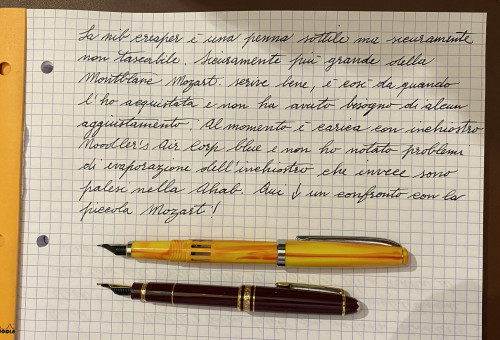 La nib creaper è una penna sottile ma sicuramente
non tascabile. Sicuramente più grande della
Montblanc Mozart. scrive bene, è così da quando
l'ho acquistata e non ha avuto bisogno di alcun
aggiustamento. Al momento è carica con inchiostro
Noodler's Air Corp blue e non ho notato problemi
di evaporazione dell'inchiostro che invece sono
palesi nella Ahab. Qui ↓ un confronto con la
piccola Mozart!
RHODIA